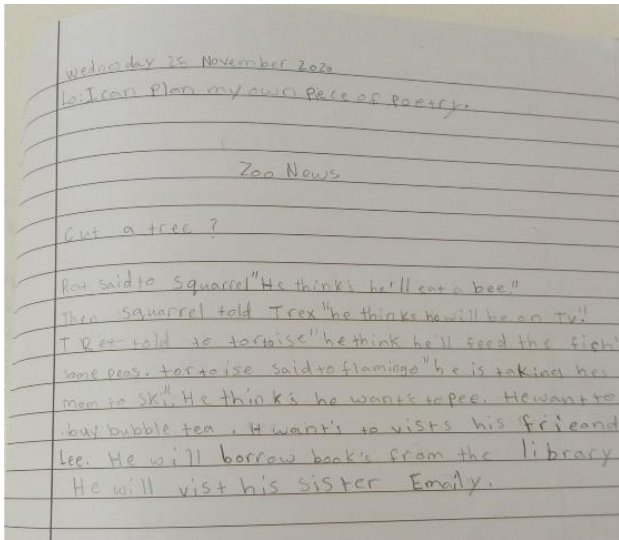 Wednesday 25 November 2020
Lo: I can plan my own pece of poetry.
Zoo News
Cut a tree ?
Rat said to squarrel "He thinks he'll eat a bee."
Then squarrel told Trex "he thinks he will be on Tv."
T Rex told to tortoise "he think he'll feed the fich
some peas. tortoise said to flamingo "he is taking hes
mom to ski". He thinks he wants to pee. He want to
buy bubble tea. H want's to vists his frieand
Lee. He will borrow book's from the library
He will vist his sister Emaily.